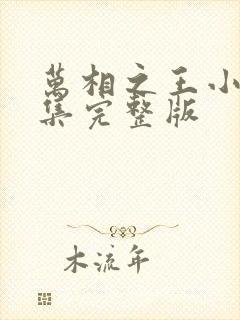 萬相之王小
集完整版
木流年